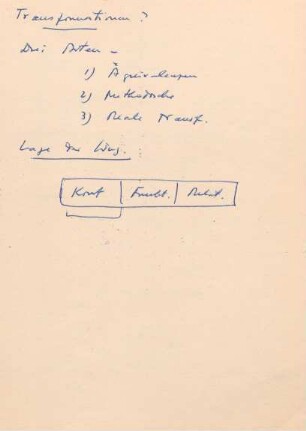 Transformationen?
Drei Arten -
1) Äquivalenzen
2) Methodische
3) Reale Transf.
Lage der Ling. :
Konf Funkt. Relat.